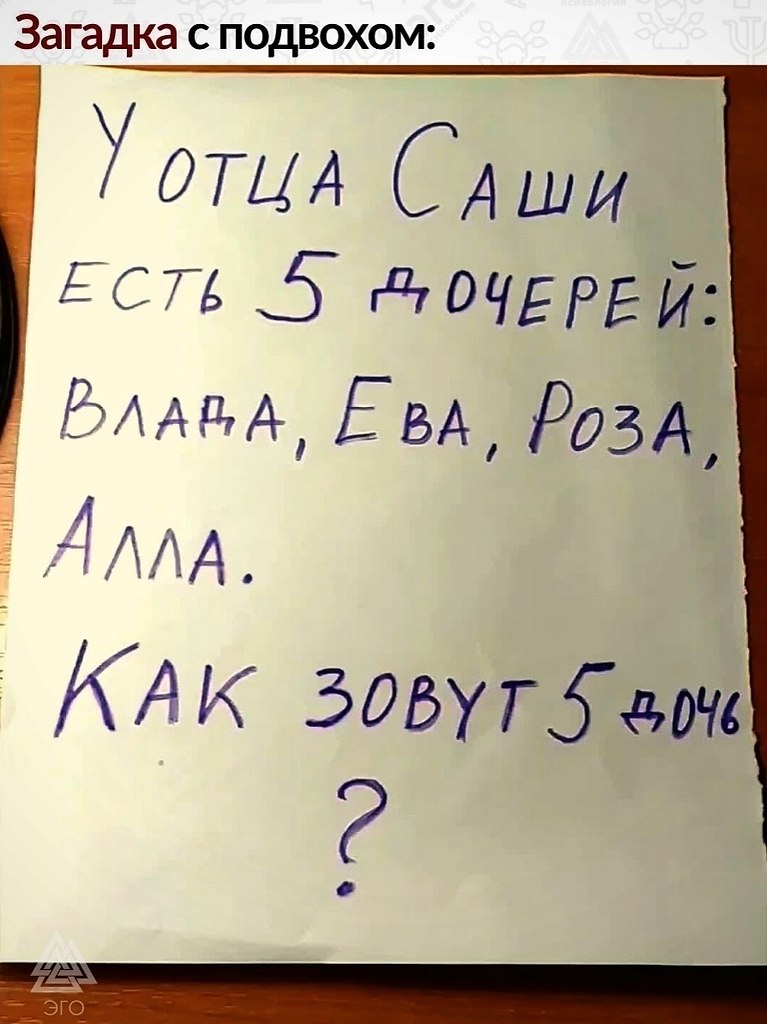 Загадка с подвохом:
У ОТЦА САШИ
ЕСТЬ 5 ДОЧЕРЕЙ:
ВЛАДА, ЕВА, РОЗА,
АЛЛА.
КАК ЗОВУТ 5 ДОЧЬ
?
ЭГО